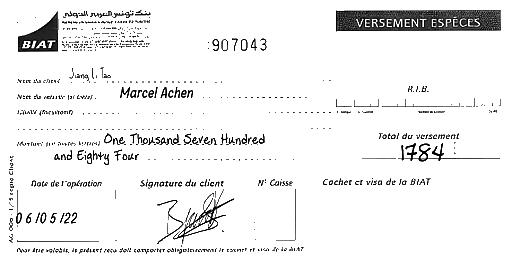 بنك تونس العربي الدولي
BIAT
907043
VERSEMENT ESPÈCES
Nom du client Jiang Li Tao
Nom du remettant (si tiers) Marcel Achen
R.I.B.
Libellé (facultatif)
Montant (en toutes lettres) One Thousand Seven Hundred
and Eighty Four
Total du versement
1784
Date de l'opération
Signature du client
N° Caisse
Cachet et visa de la BIAT
06/05/22
Pour être valable, le présent reçu doit comporter obligatoirement le cachet et visa de la BIAT